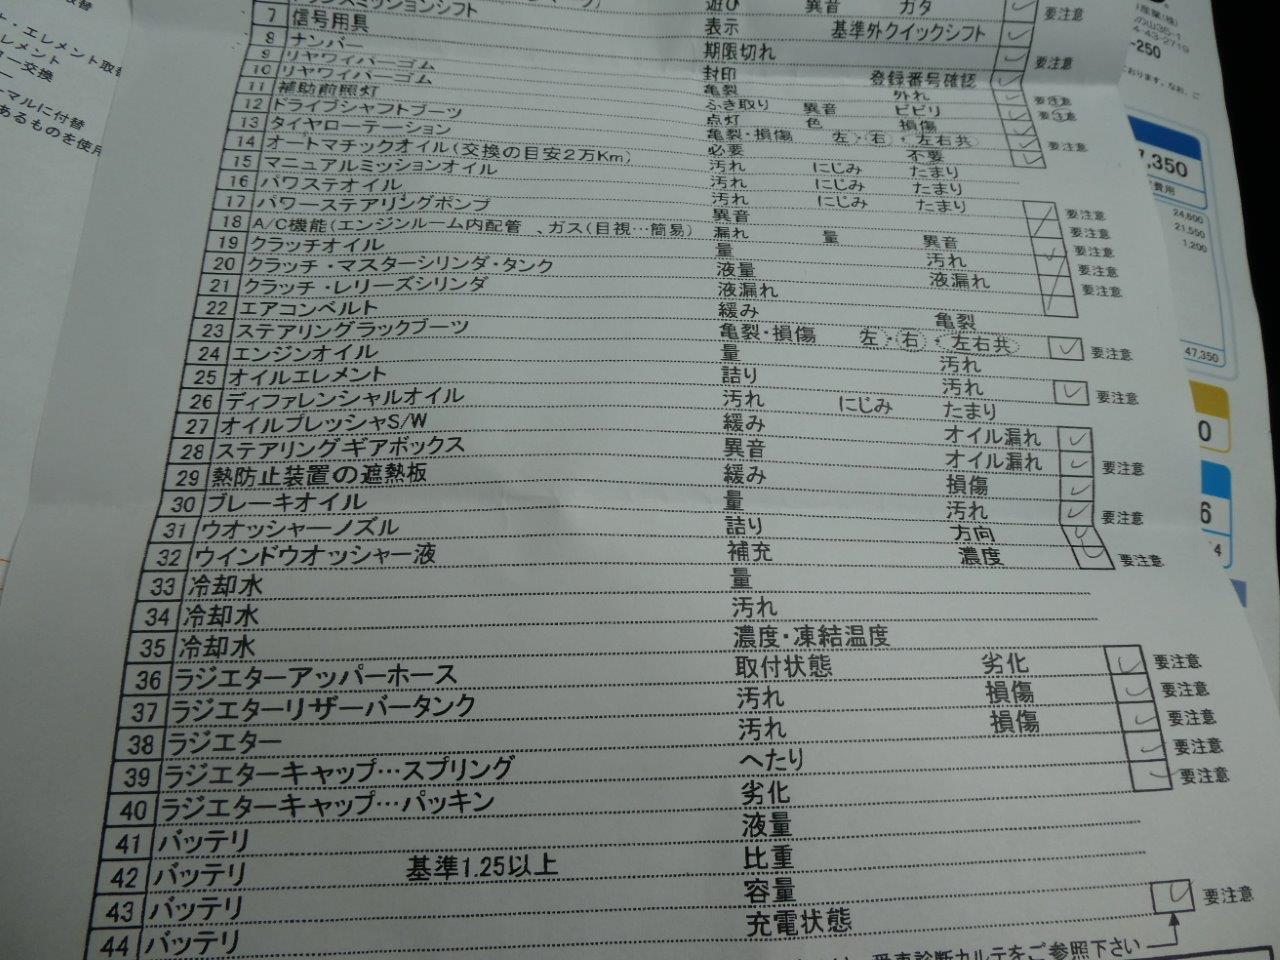 遊び 異音 ガタ 要注意
7 信号用具 表示 基準外クイックシフト
8 ナンバー 期限切れ 要注意
9 リヤワイパーゴム 封印 登録番号確認
10 リヤワイパーゴム 亀裂 外れ 要注意
11 補助前照灯 ふき取り 異音 ビビリ 要注意
12 ドライブシャフトブーツ 点灯 色 損傷
13 タイヤローテーション 亀裂・損傷 左・右・左右共 要注意
14 オートマチックオイル(交換の目安2万Km) 必要 不要
15 マニュアルミッションオイル 汚れ にじみ たまり
16 パワステオイル 汚れ にじみ たまり
17 パワーステアリングポンプ 汚れ にじみ たまり 要注意
18 A/C機能(エンジンルーム内配管 、ガス(目視…簡易) 異音 要注意
19 クラッチオイル 漏れ 量 異音 要注意
20 クラッチ・マスターシリンダ・タンク 量 汚れ 要注意
21 クラッチ・レリーズシリンダ 液量 液漏れ 要注意
22 エアコンベルト 液漏れ
23 ステアリングラックブーツ 緩み 亀裂 要注意
24 エンジンオイル 亀裂・損傷 左・右・左右共
25 オイルエレメント 量 汚れ 要注意
26 ディファレンシャルオイル 詰り 汚れ
27 オイルプレッシャS/W 汚れ にじみ たまり
28 ステアリングギアボックス 緩み オイル漏れ 要注意
29 熱防止装置の遮熱板 異音 オイル漏れ
30 ブレーキオイル 緩み 損傷 要注意
31 ウオッシャーノズル 量 汚れ
32 ウインドウオッシャー液 詰り 方向 要注意
33 冷却水 補充 濃度
34 冷却水 量
35 冷却水 汚れ
36 ラジエターアッパーホース 濃度・凍結温度
37 ラジエターリザーバータンク 取付状態 劣化 要注意
38 ラジエター 汚れ 損傷 要注意
39 ラジエターキャップ…スプリング 汚れ 損傷 要注意
40 ラジエターキャップ…パッキン へたり 要注意
41 バッテリ 劣化 要注意
42 バッテリ 基準1.25以上 液量
43 バッテリ 比重
44 バッテリ 容量
充電状態 要注意
をご参照下さい
エレメント取替
エレメント
ター交換
マルに付替
あるものを使用
-250
7,350
費用
24,600
21,550
1,200
47,350
0
6
4